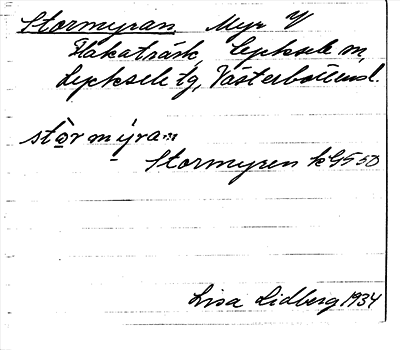 Stormyran Myr V
Hakaträsk, Lycksele m,
Lycksele tg, Västerbottensl.
stòr mỳra:n
Stormyren kG5 50
Lisa Lidberg 1934